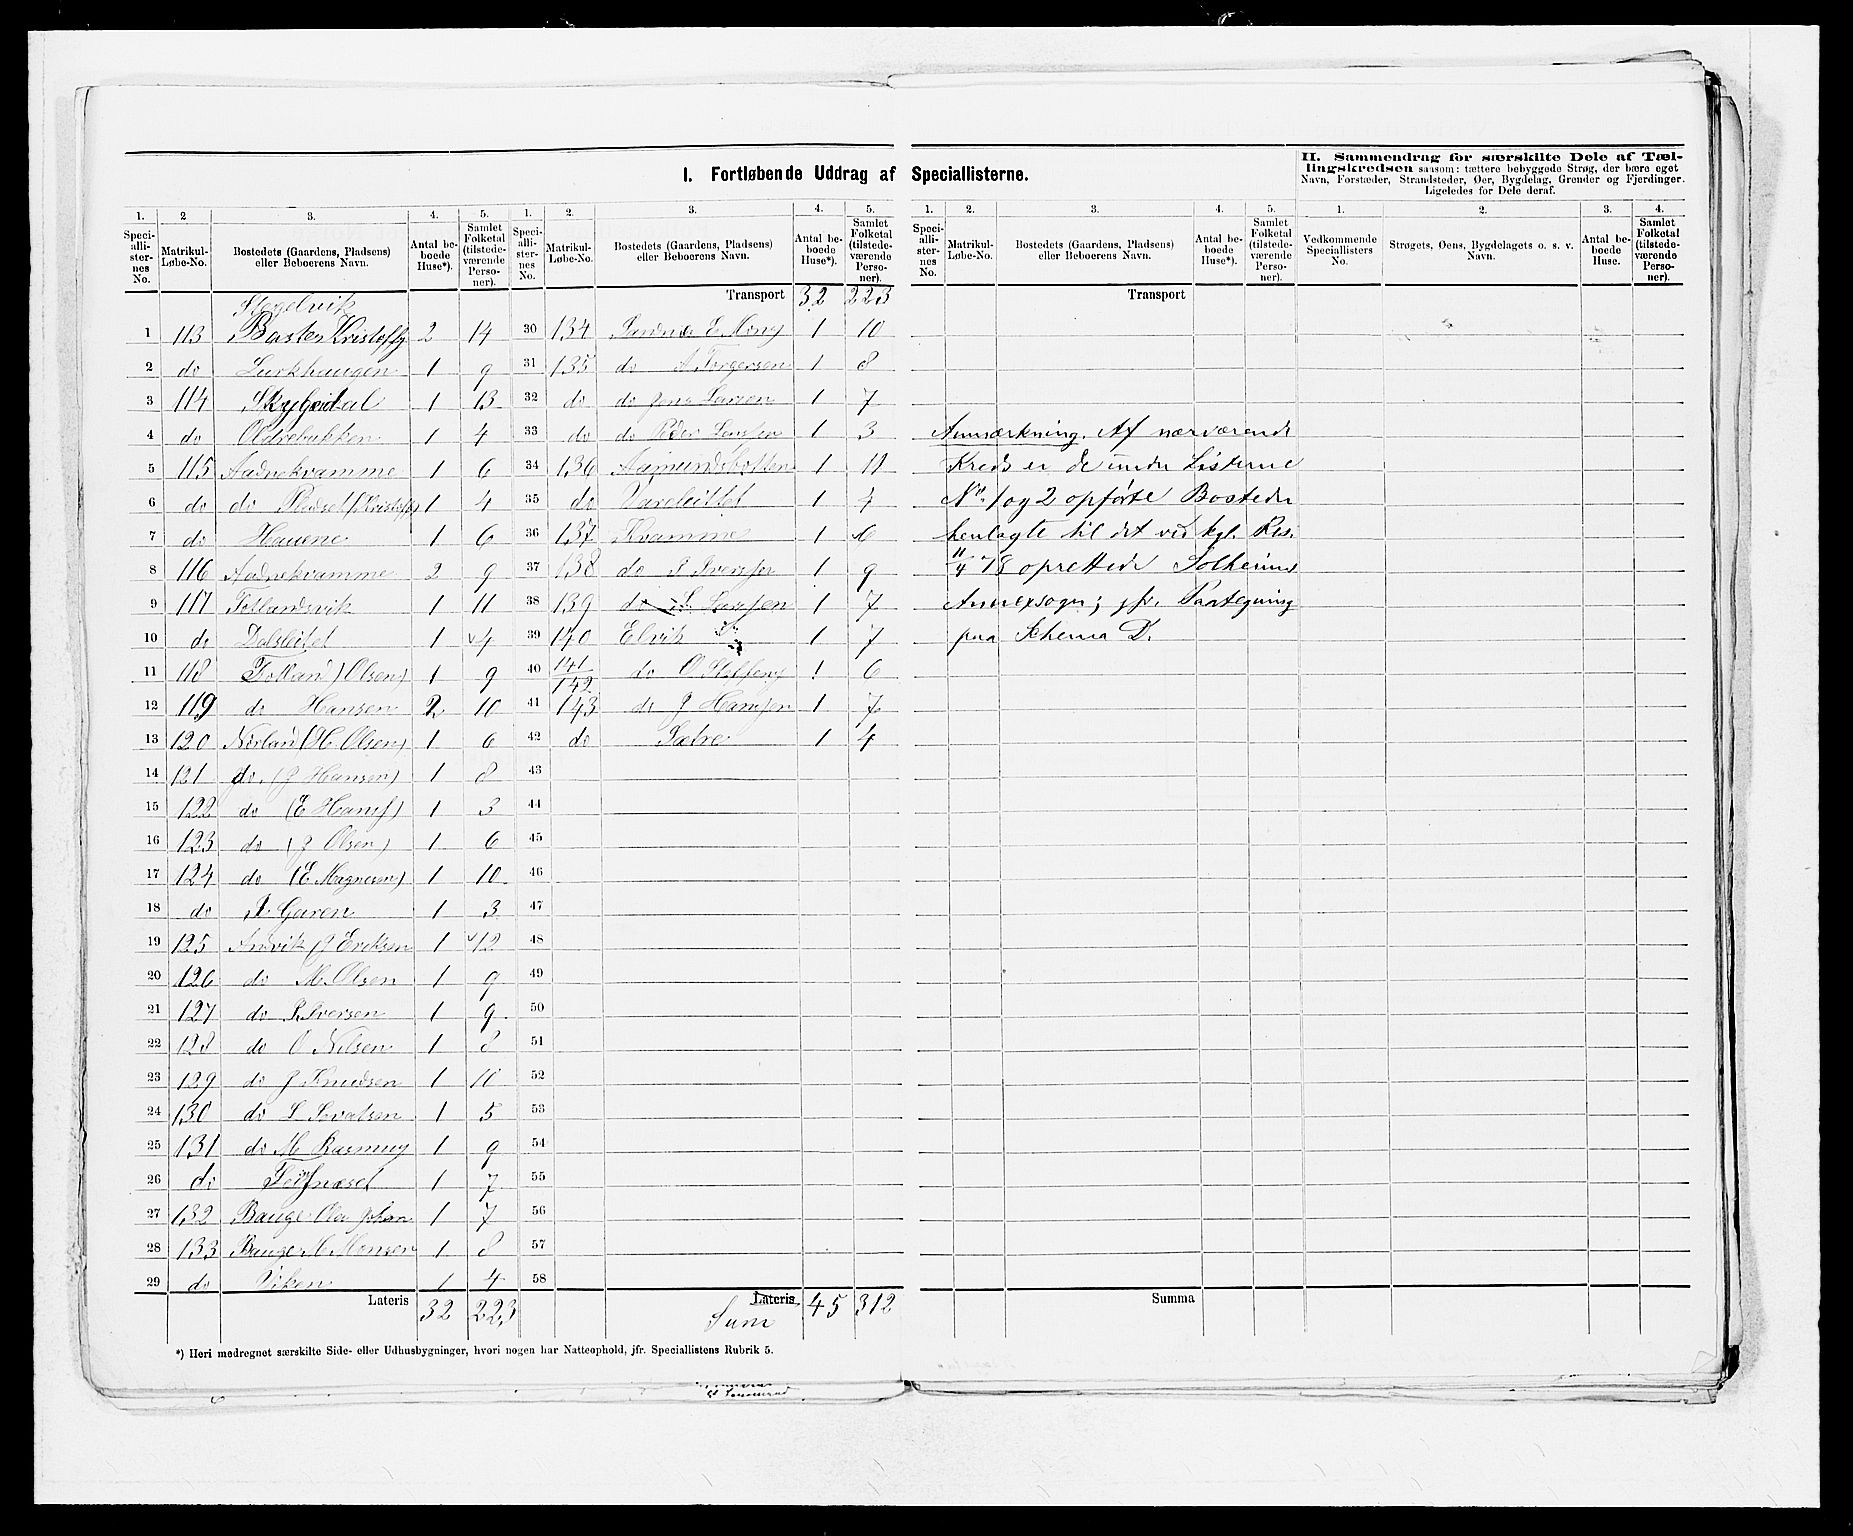 I. Fortløbende Uddrag af Speciallisterne.
II. Sammendrag for særskilte Dele af Tæl-
lingskredsen saasom: tættere bebyggede Strøg, der bære eget
Navn, Forstæder, Strandsteder, Øer, Bygdelag, Grender og Fjerdinger.
Ligeledes for Dele deraf.
1. 2 3. 4. 5. 1. 2. 3. 4. 5. 1. 2. 3. 4. 5. 1. 2. 3. 4.
Speciallisternes No. Matrikul-Løbe-No. Bostedets (Gaardens, Pladsens) eller Beboerens Navn. Antal beboede Huse*). Samlet Folketal (tilstedeværende Personer).
Speciallisternes No. Matrikul-Løbe-No. Bostedets (Gaardens, Pladsens) eller Beboerens Navn. Antal beboede Huse*). Samlet Folketal (tilstedeværende Personer).
Speciallisternes No. Matrikul-Løbe-No. Bostedets (Gaardens, Pladsens) eller Beboerens Navn. Antal beboede Huse*). Samlet Folketal (tilstedeværende Personer).
Vedkommende Speciallisters No. Strøgets, Øens, Bygdelagets o. s. v. Navn. Antal beboede Huse. Samlet Folketal (tilstedeværende Personer).
1 113 2 14
2 do 1 9
3 114 1 13
4 do Oldrebakken 1 4
5 115 Aadnekvamme 1 6
6 do do 1 4
7 do Hauene 1 6
8 116 Aadnekvamme 2 9
9 117 Totlandsvik 1 11
10 do Dalsleitet 1 4
11 118 Totland (Olsen) 1 9
12 119 do Hansen 2 10
13 120 Nörland (H Olsen) 1 6
14 121 do. (J Hansen) 1 8
15 122 do (E Hans) 1 3
16 123 do (J Olsen) 1 6
17 124 do (E Magnesen) 1 10
18 do Garen 1 3
19 125 Anvik (J Eriksen 1 12
20 126 do M. Olsen 1 9
21 127 do Iversen 1 9
22 128 do O Nilsen 1 8
23 129 do J Knudsen 1 10
24 130 do 1 5
25 131 do M Rasmus 1 9
26 do 1 7
27 132 Bauge Ola Johan 1 7
28 133 Bauge M Monsen 1 8
29 do Viken 1 4
Lateris 32 223
Transport 32 223
30 134 E Mons 1 10
31 135 do A Torgersen 1 8
32 do do Jens Larsen 1 7
33 do do Peder 1 3
34 136 Aamundsbotten 1 11
35 do Vareleitet 1 4
36 137 Kvamme 1 6
37 138 do Iversen 1 9
38 139 do 1 7
39 140 Elvik 1 7
40 141/142 do O 1 6
41 143 do J Hansen 1 7
42 do Sætre 1 4
43
44
45
46
47
48
49
50
51
52
53
54
55
56
57
58
Lateris
Sum 45 312
Transport
Anmærkning. Af nærværende
Kreds er de under Listerne
No. 1 og 2 opførte Bosteder
henlagte til det ved kgl. Res.
11/4 78 oprettede Solheims
Annexsogn; jfr. Paategning
paa Schema D.
Summa
*) Heri medregnet særskilte Side- eller Udhusbygninger, hvori nogen har Natteophold, jfr. Speciallistens Rubrik 5.